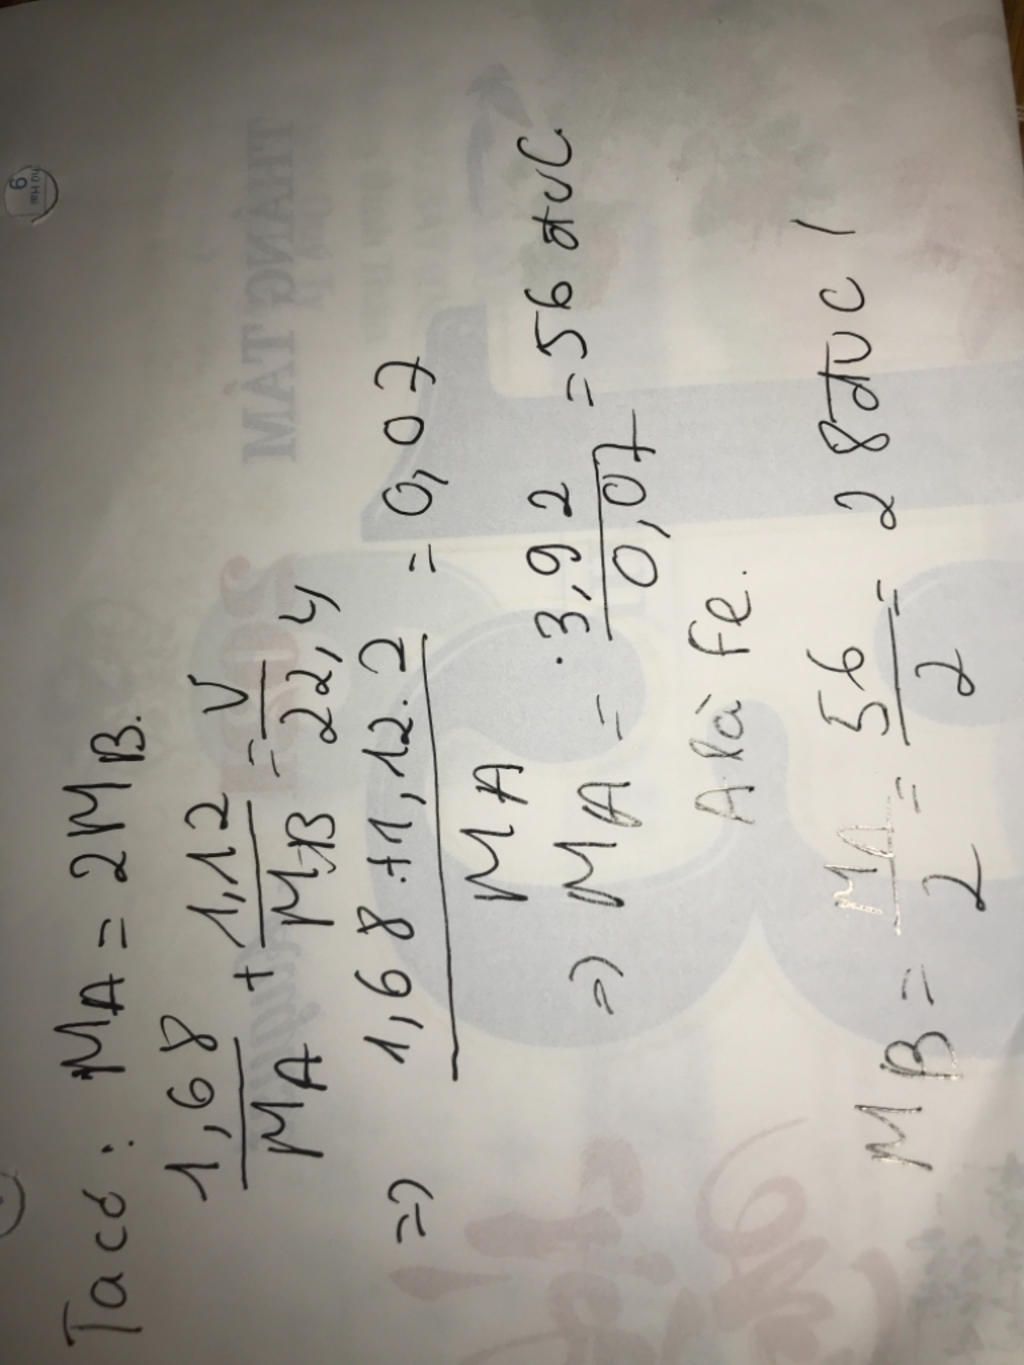 Ta có: MA = 2MB.
1,68/MA + 1,12/MB = V/22,4
=> 1,68 + 1,12.2/MA = 0,07
=> MA = 3,92/0,07 = 56 đvC.
A là Fe.
MB = MA/2 = 56/2 = 28 đvC
THÁNG TÁM